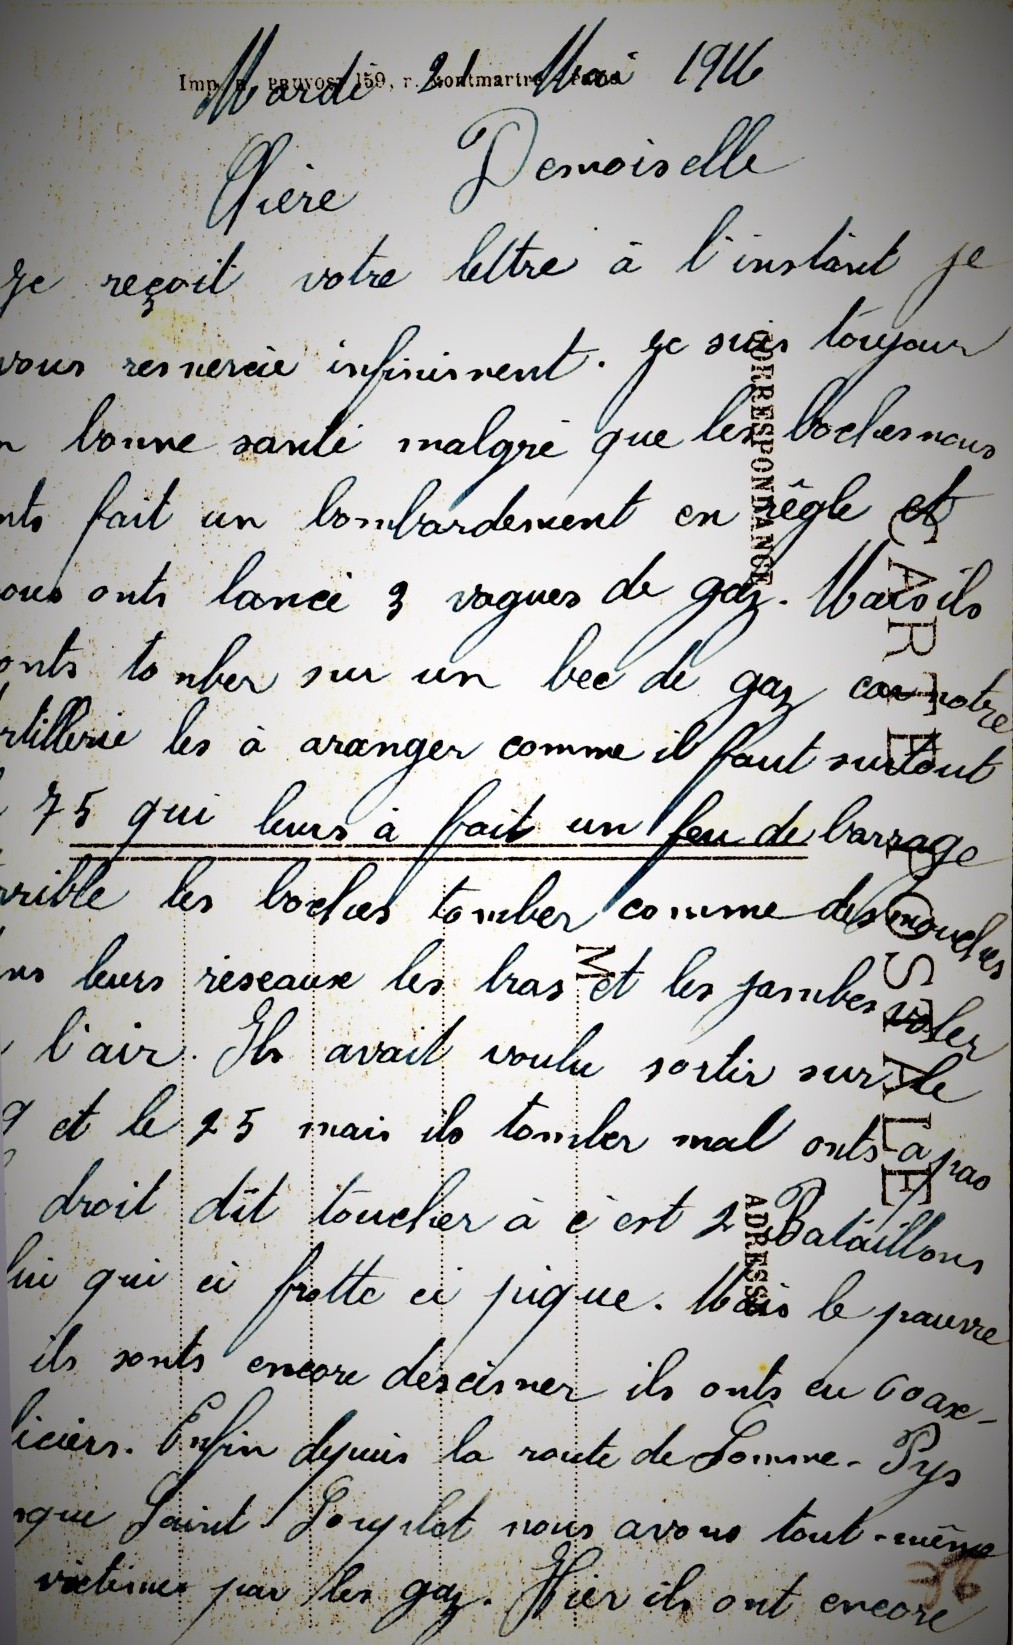 Imp. PRUVOST 159, r. Montmartre
Mardi 21 Mai 1916
Chère Demoiselle
Je reçoit votre lettre à l'instant je
vous remercie infiniment. Je suis toujour
n bonne santé malgré que les boches nous
nts fait un bombardement en règle et
ous onts lancé 3 vagues de gaz. Mais ils
onts tomber sur un bec de gaz car notre
rtillerie les à aranger comme il faut surtout
75 qui leurs à fait un feu de barrage
rrible les boches tomber comme des mouches
ns leurs réseaux les bras et les jambes voler
l'air. Ils avait voulu sortir sur le
9 et le 25 mais ils tomber mal onts a pas
droit dit toucher à c'est 2 Bataillons
lui qui ci frotte ci pique. Mais le pauvre
ils sonts encore descisner ils onts eu
liciers. Enfin depuis la route de Somme-Pys
sque Saint Souplet nous avons tout-même
victimes par les gaz. Hier ils ont encore
CORRESPONDANCE
CARTE POSTALE
ADRESSE
M